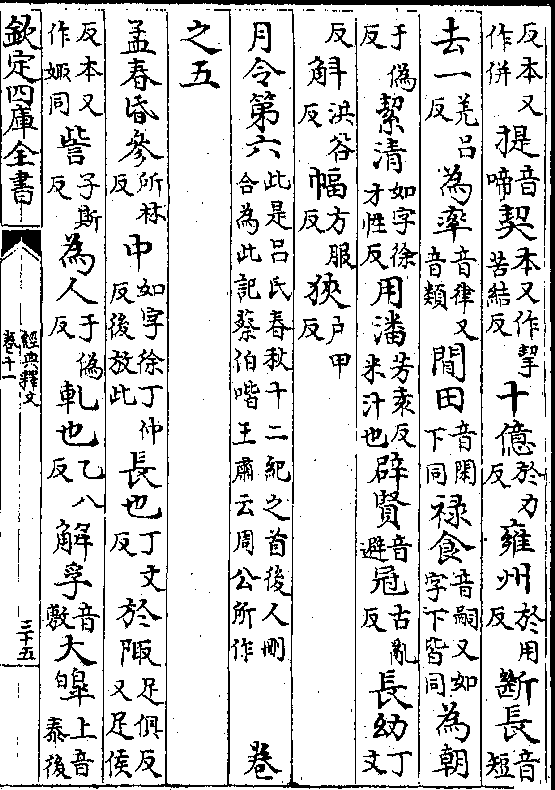 反本又作併提音啼契本又作挈苦結反十億於力反雍州於用反斷長音短
去一羌呂反為率音律又音類閒田音閑下同祿食音嗣又如字下皆同為朝
于偽反絜清如字徐才性反用潘芳袁反米汁也辟賢音避冠古亂反長幼丁丈
反斛洪谷反幅方服反狹戶甲反
月令第六此是呂氏春秋十二紀之首後人刪合為此記蔡伯喈王肅云周公所作卷
之五
孟春昏參所林反中如字徐丁仲反後放此長也丁丈反於陬足俱反又足侯
反本又作娵同訾子斯反為人于偽反軋也乙八反解孚音敷大皞上音泰後
欽定四庫全書
經典釋文
卷十一
三十五